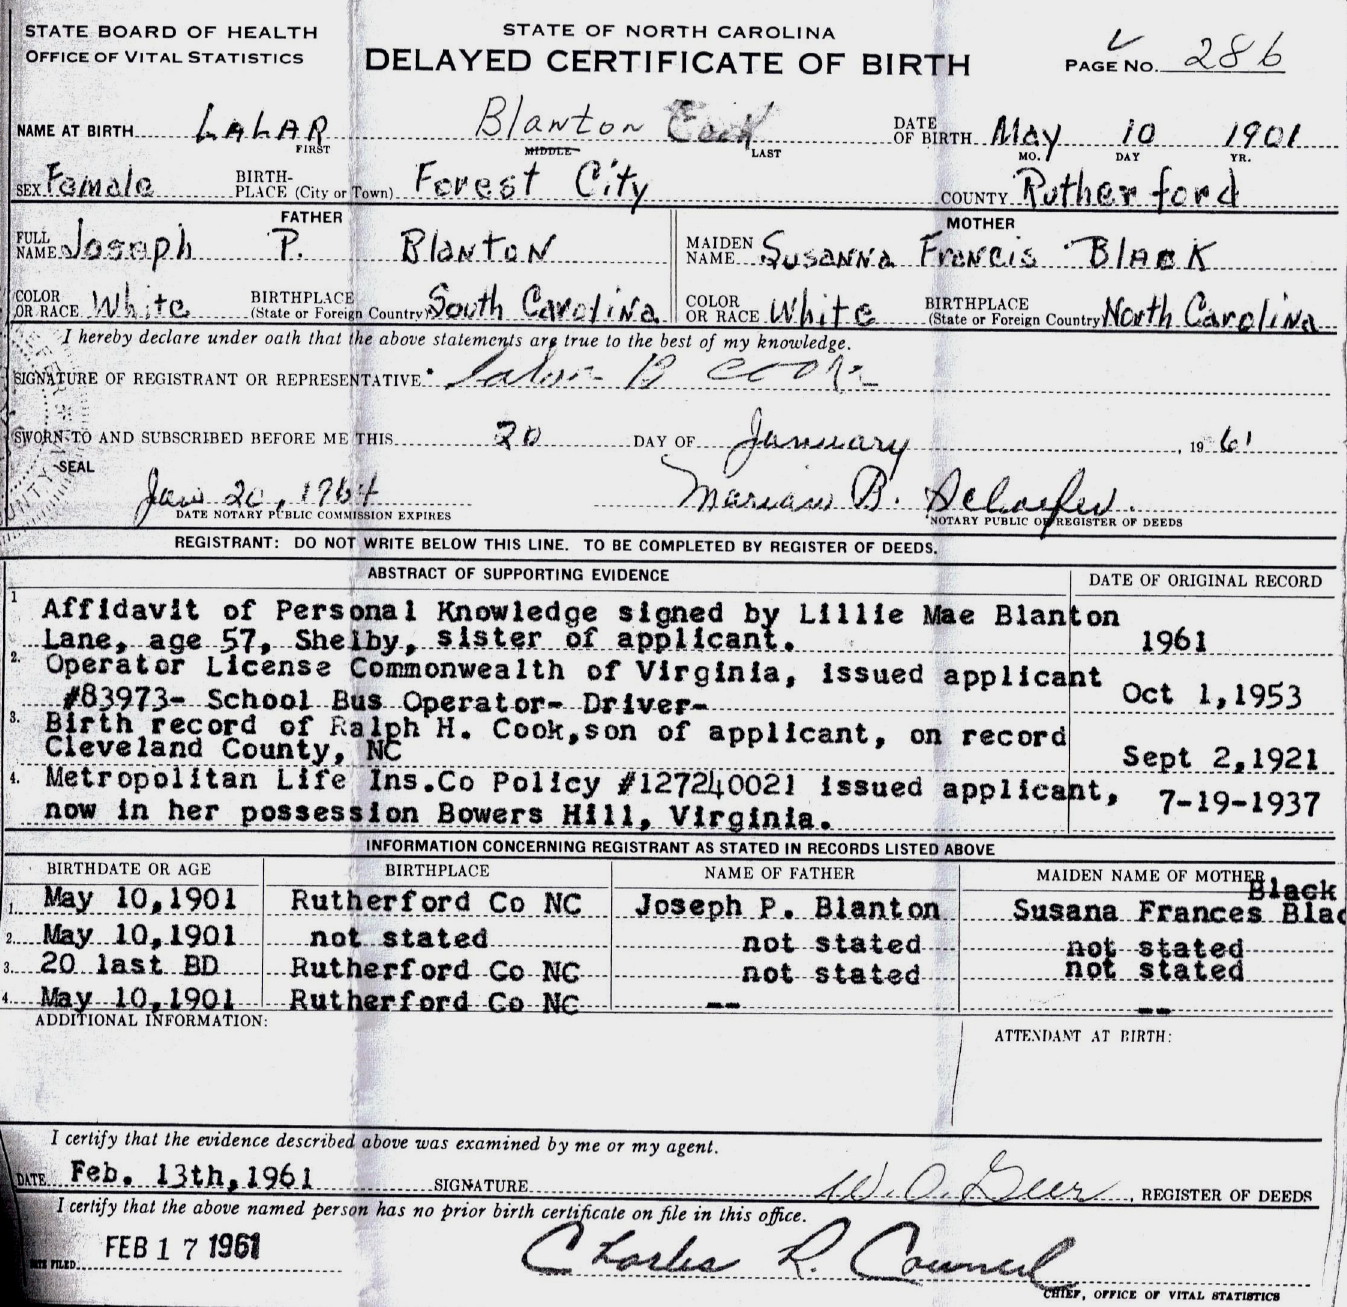 STATE BOARD OF HEALTH
OFFICE OF VITAL STATISTICS
STATE OF NORTH CAROLINA
DELAYED CERTIFICATE OF BIRTH
PAGE NO. 286
NAME AT BIRTH LALAR Blanton Cook DATE OF BIRTH May 10 1901
FIRST MIDDLE LAST MO. DAY YR.
SEX Female BIRTH-PLACE (City or Town) Forest City COUNTY Rutherford
FATHER MOTHER
FULL NAME Joseph P. Blanton MAIDEN NAME Susanna Francis Black
COLOR OR RACE White BIRTHPLACE (State or Foreign Country) South Carolina COLOR OR RACE White BIRTHPLACE (State or Foreign Country) North Carolina
I hereby declare under oath that the above statements are true to the best of my knowledge.
SIGNATURE OF REGISTRANT OR REPRESENTATIVE* Lalar B Cook
SWORN TO AND SUBSCRIBED BEFORE ME THIS 20 DAY OF January, 19 61
SEAL
Jan 20, 1964 Marian B.
DATE NOTARY PUBLIC COMMISSION EXPIRES NOTARY PUBLIC OR REGISTER OF DEEDS
REGISTRANT: DO NOT WRITE BELOW THIS LINE. TO BE COMPLETED BY REGISTER OF DEEDS.
ABSTRACT OF SUPPORTING EVIDENCE DATE OF ORIGINAL RECORD
1 Affidavit of Personal Knowledge signed by Lillie Mae Blanton
Lane, age 57, Shelby, sister of applicant. 1961
2. Operator License Commonwealth of Virginia, issued applicant
#83973- School Bus Operator- Driver- Oct 1,1953
3. Birth record of Ralph H. Cook,son of applicant, on record
Cleveland County, NC Sept 2,1921
4. Metropolitan Life Ins.Co Policy #127240021 issued applicant,
now in her possession Bowers Hill, Virginia. 7-19-1937
INFORMATION CONCERNING REGISTRANT AS STATED IN RECORDS LISTED ABOVE
BIRTHDATE OR AGE BIRTHPLACE NAME OF FATHER MAIDEN NAME OF MOTHER
Black
1. May 10,1901 Rutherford Co NC Joseph P. Blanton Susana Frances Blac
2. May 10,1901 not stated not stated not stated
3. 20 last BD Rutherford Co NC not stated not stated
4. May 10,1901 Rutherford Co NC -- --
ADDITIONAL INFORMATION:
ATTENDANT AT BIRTH:
I certify that the evidence described above was examined by me or my agent.
DATE Feb. 13th,1961 SIGNATURE W. O. Geer, REGISTER OF DEEDS
I certify that the above named person has no prior birth certificate on file in this office.
DATE FILED FEB 17 1961 Charles R. Council
CHIEF, OFFICE OF VITAL STATISTICS